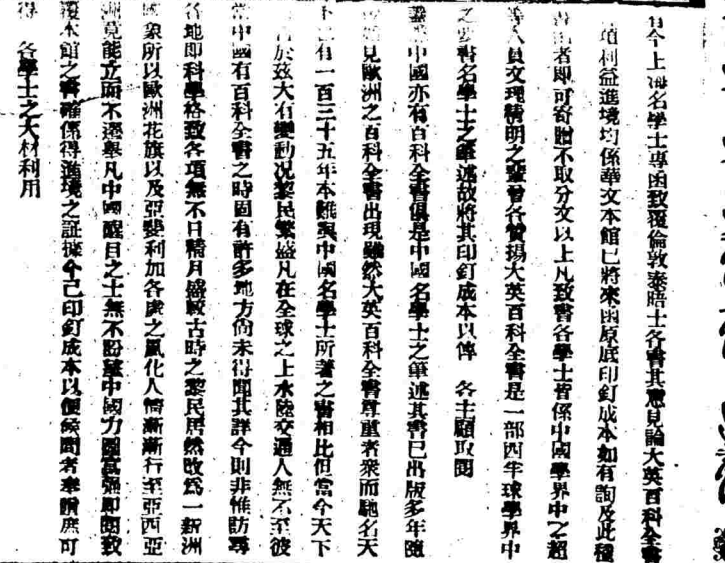 今上海名學士專函致覆倫敦泰晤士各書其意見論大英百科全書
項利益進境均係華文本館已將來函原底印釘成本如有詢及此種
者即可寄贈不取分文以上凡致書各學士皆係中國學界中之超
等人員文理精明之輩曾各贊揚大英百科全書是一部西半球學界中
之要書名學士之筆述故將其印釘成本以俾 各主顧取閱
中國亦有百科全書俱是中國名學士之筆述其書已出版多年
見歐洲之百科全書出現雖然大英百科全書尊重者衆而馳名天
下已有一百三十五年本難與中國名學士所著之書相比但當今天下
於茲大有變動況黎民繁盛凡在全球之上水陸交通人無不至彼
當中國有百科全書之時固有許多地方尙未得聞其詳今則非惟訪尋
各地即科學格致各項無不日精月盛較古時之黎民居然改爲一新洲
象所以歐洲花旗以及亞斐利加各處之風化人情漸漸行至亞西亞
洲竟能立而不選舉凡中國醒目之士無不盼望中國力圖富強即閱致
覆本館之書確係得進境之証據今已印釘成本以便候閱者奉贈庶可
得 各學士之大材利用